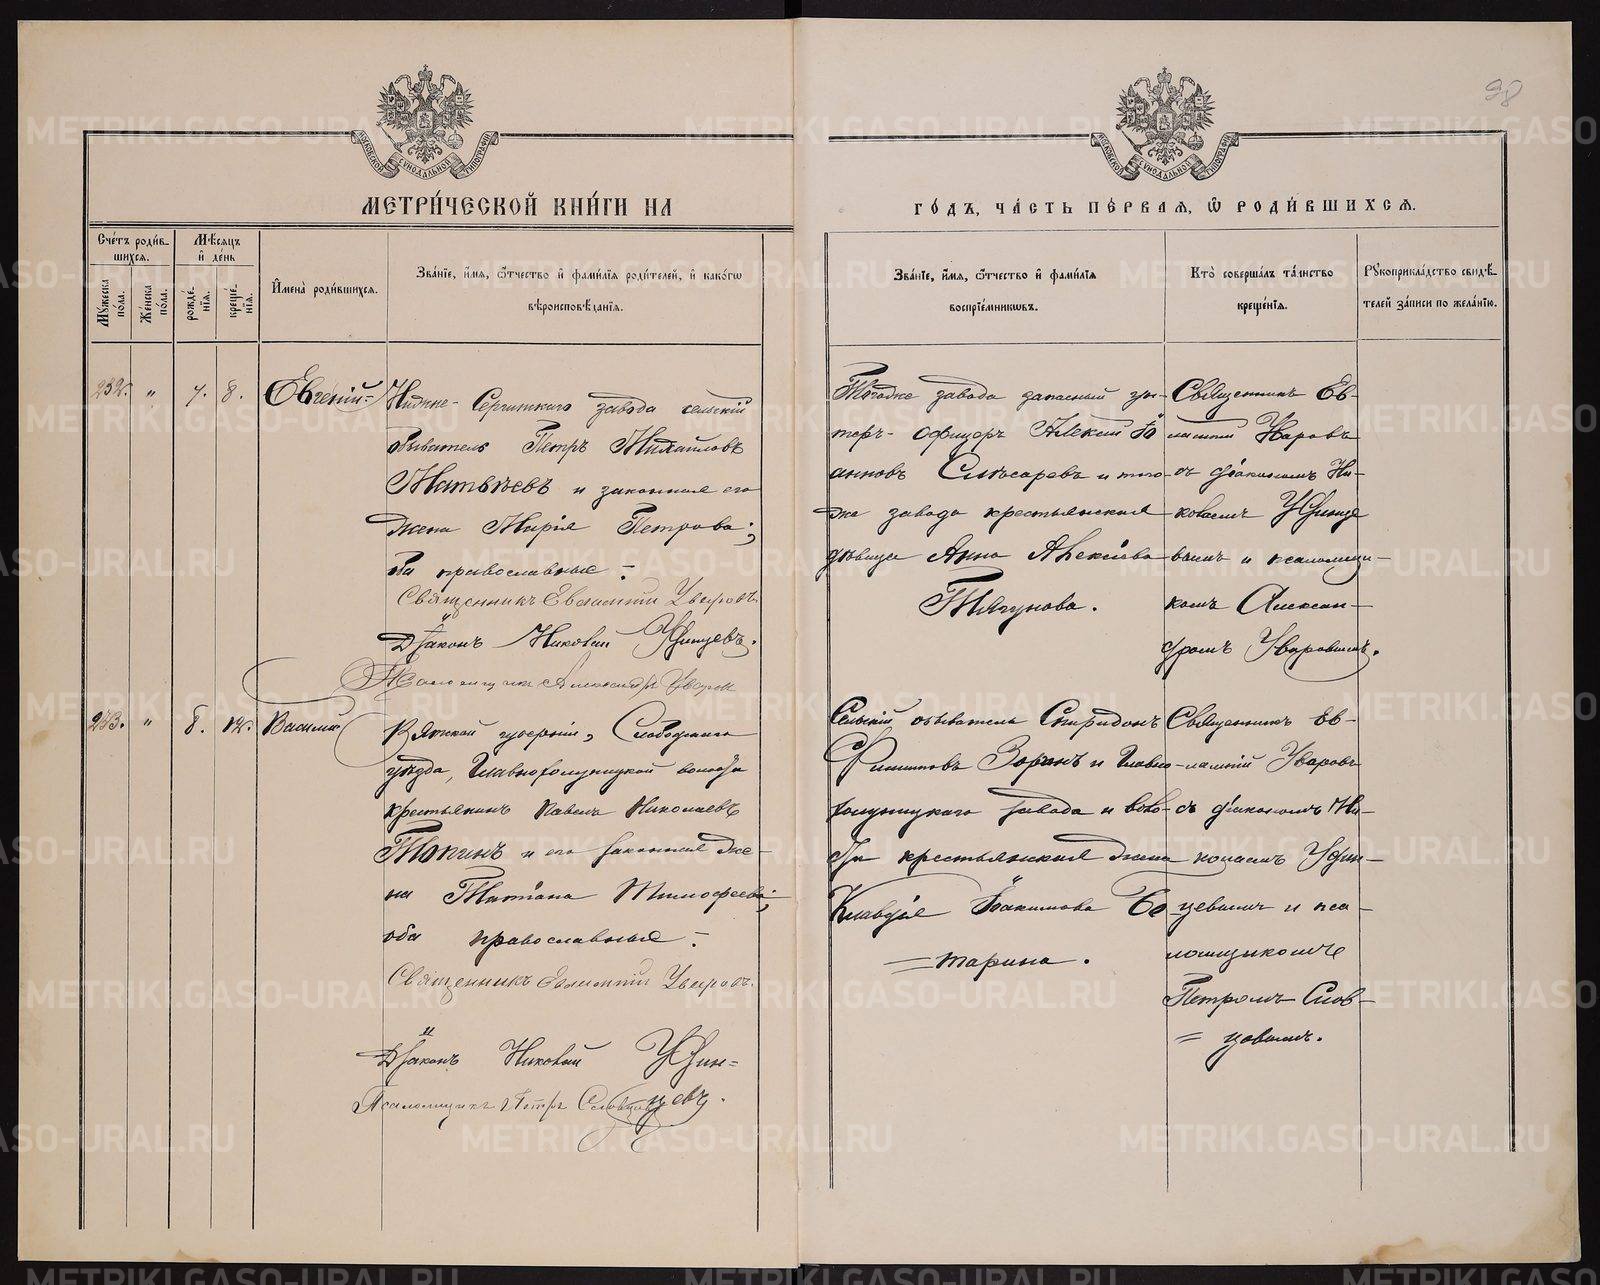 98
МЕТРИ́ЧЕСКОЙ КНИ́ГИ НА
ГО́ДЪ, ЧА́СТЬ ПЕ́РВАЯ, Ѽ РОДИ́ВШИХСЯ.
Сче́тъ роди́вшихся.
Му́жеска по́ла.
Же́нска по́ла.
Мѣ́сяцъ и҆ де́нь
рожде́нїя.
креще́нїя.
И҆мена̀ роди́вшихся.
Зва́нїе, и҆́мя, ѻ҆́тчество и҆ фами́лїя роди́телей, и҆ како́гѡ
вѣроисповѣ́данїя.
Зва́нїе, и҆́мя, ѻ҆́тчество и҆ фами́лїя
воспрїе́мникѡвъ.
Кто̀ соверша́лъ та́инство
креще́нїя.
Рꙋкоприкла́дство свидѣ́телей за́писи по жела́нїю.
232. " 7. 8. Евгеній
Нижне-Сергинскаго завода сельскій
обыватель Петръ Михаиловъ
Матвѣевъ и законная его
жена Марія Петрова;
оба православные.
Священникъ Евлампій Уваровъ.
Діаконъ Николай Уфинцевъ.
Псаломщикъ Александръ Уваровъ
Тогоже завода запасный ун-
теръ-офицеръ Алексій Іо
анновъ Слюсаревъ и того
же завода крестьянская
дѣвица Анна Алексіева
Тягунова.
Священникъ Ев-
лампій Уваровъ
съ діакономъ Ни-
колаемъ Уфинце
вымъ и псаломщи-
комъ Алексан-
дромъ Уваровымъ.
233. " 8. 12. Василій
Вятской губерніи, Слободскаго
уѣзда, Главнохолуницкой волости
крестьянинъ Павелъ Николаевъ
и его законная же-
на Татіана Тимофеева;
оба православные.
Священникъ Евлампій Уваровъ.
Діаконъ Николай Уфин=
цевъ.
Псаломщикъ Петръ Словцовъ
Сельскій обыватель Спиридонъ
Филипповъ Зоринъ и Главно-
холуницкаго завода и воло-
сти крестьянская жена
Клавдія Іоакимова Бо
=тарина.
Священникъ Ев-
лампій Уваровъ
съ діакономъ Ни-
колаемъ Уфин-
цевымъ и пса-
ломщикомъ
Петромъ Слов-
=цовымъ.
METRIKI.GASO-URAL.RU